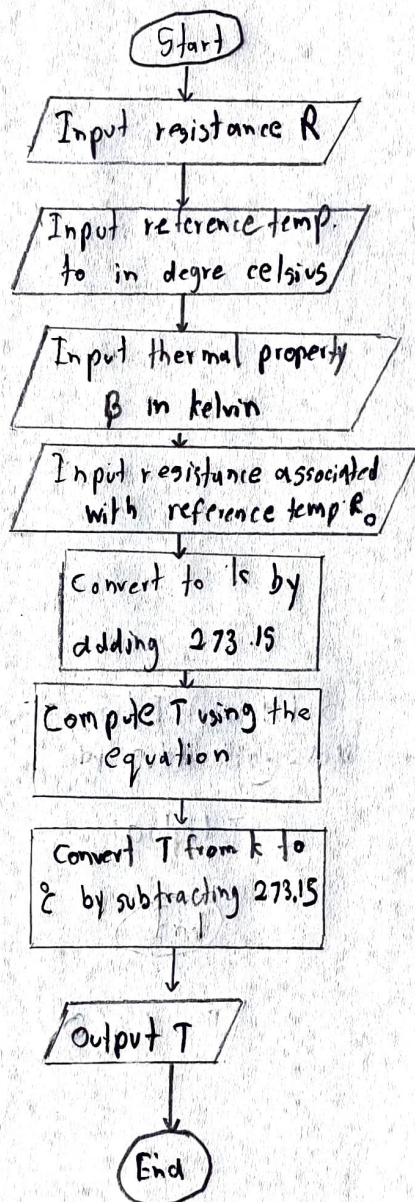 Start
Input resistance R
Input reference temp.
to in degre celsius
Input thermal property
β in kelvin
Input resistance associated
with reference temp. R₀
Convert to k by
adding 273.15
Compute T using the
equation
Convert T from k to
°c by subtracting 273.15
Output T
End